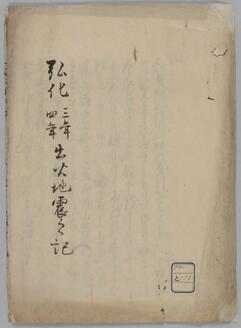 弘化三年四年出火地震之記